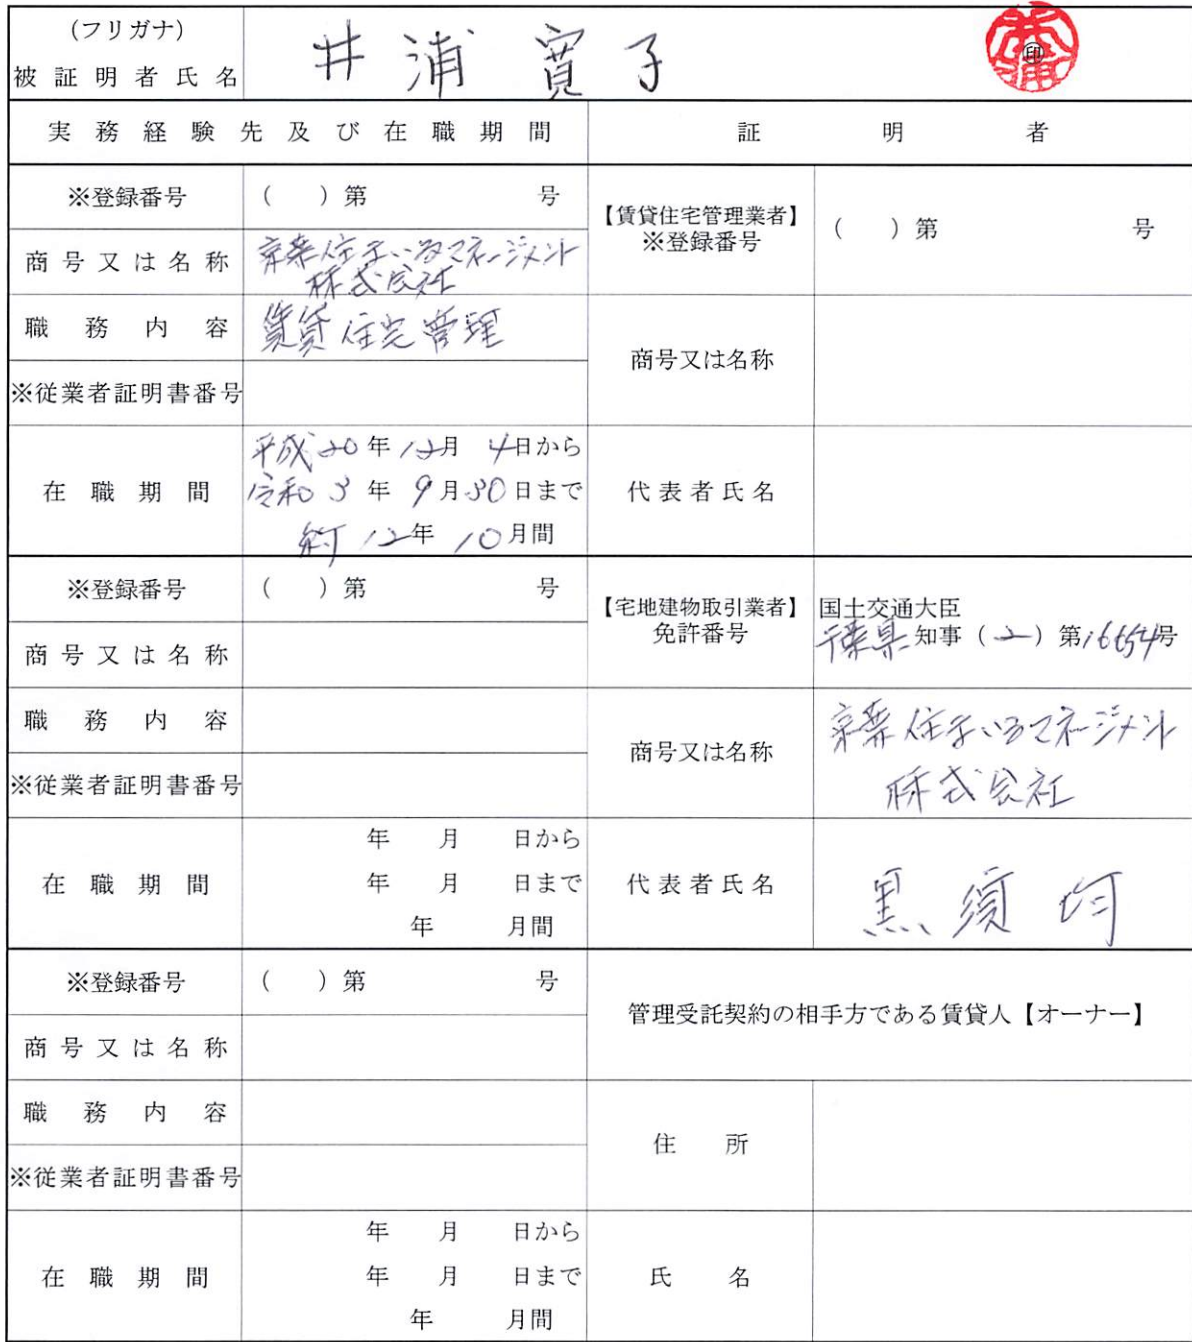 (フリガナ)
被証明者氏名 井浦寛子 印
実務経験先及び在職期間 証明者
※登録番号 ( )第 号
【賃貸住宅管理業者】
※登録番号 ( )第 号
商号又は名称 京葉住まいるマネージメント
株式会社
職務内容 賃貸住宅管理
商号又は名称
※従業者証明書番号
在職期間 平成20年12月4日から
令和3年9月30日まで
約12年10月間
代表者氏名
※登録番号 ( )第 号
【宅地建物取引業者】
免許番号
国土交通大臣
千葉県知事(2)第16654号
商号又は名称
職務内容
商号又は名称 京葉住まいるマネージメント
株式会社
※従業者証明書番号
在職期間 年 月 日から
年 月 日まで
年 月間
代表者氏名 黒須均
※登録番号 ( )第 号
管理受託契約の相手方である賃貸人【オーナー】
商号又は名称
職務内容
住所
※従業者証明書番号
在職期間 年 月 日から
年 月 日まで
年 月間
氏名